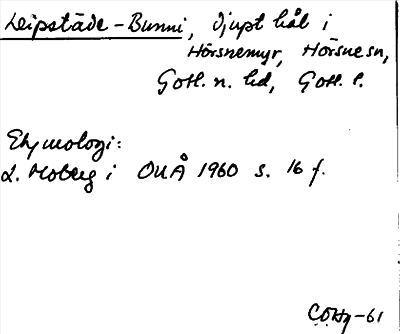 Leipstäde-Bunni, djupt hål i
Hörsnemyr, Hörsne sn,
Gotl. n. hd, Gotl. l.
Etymologi:
L. Moberg i ONÅ 1960 s. 16 f.